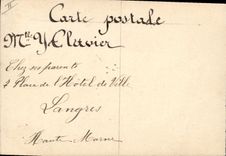 Carte postale
Mlle Y. Clervier
Chez ses parents
4 Place de l'Hôtel de Ville
Langres
Haute Marne